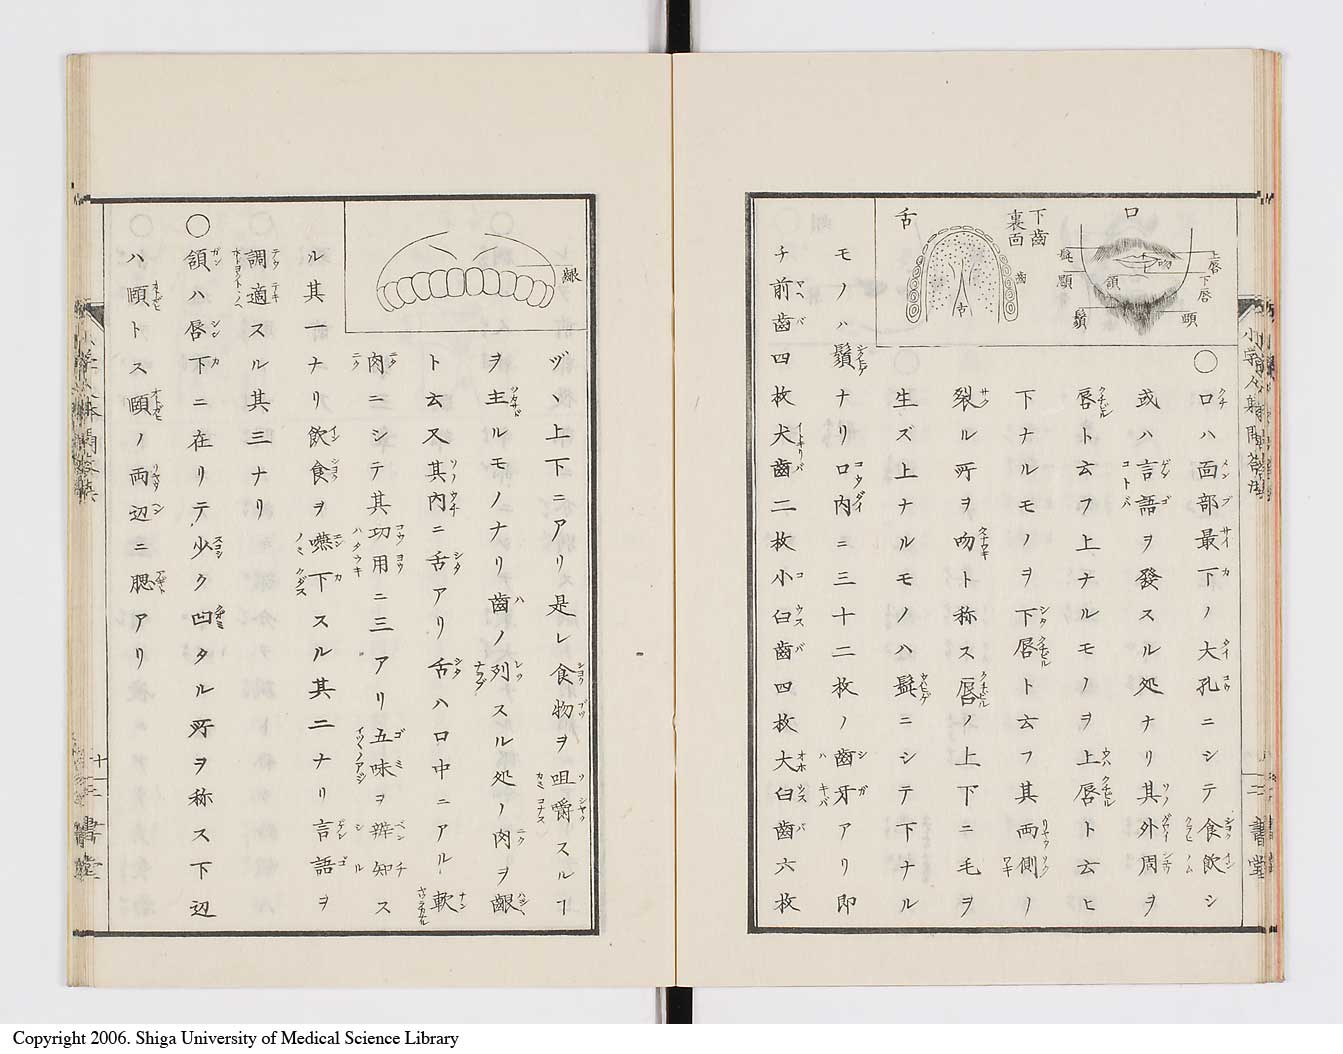 口
上唇
下唇
吻
頷
髭
頤
鬚
頤
下歯
裏面
歯
舌
舌
〇口ハ面部最下ノ大孔ニシテ食飲シ
或ハ言語ヲ發スル処ナリ其外周ヲ
唇ト云フ上ナルモノヲ上唇ト云ヒ
下ナルモノヲ下唇ト云フ其両側ノ
裂ル所ヲ吻ト称ス唇ノ上下ニ毛ヲ
生ズ上ナルモノハ髭ニシテ下ナル
モノハ鬚ナリ口内ニ三十二枚ノ歯牙アリ即
チ前歯四枚犬歯二枚小臼歯四枚大臼歯六枚
齦
ヅヽ上下ニアリ是レ食物ヲ咀嚼スルヿ
ヲ主ルモノナリ歯ノ列スル処ノ肉ヲ齦
ト云又其内ニ舌アリ舌ハ口中ニアル軟
肉ニシテ其功用ニ三アリ五味ヲ辨知ス
ル其一ナリ飲食ヲ嚥下スル其二ナリ言語ヲ
調適スル其三ナリ
〇頷ハ唇下ニ在リテ少ク凹タル所ヲ称ス下辺
ハ頤トス頤ノ両辺ニ腮アリ
Copyright 2006. Shiga University of Medical Science Library